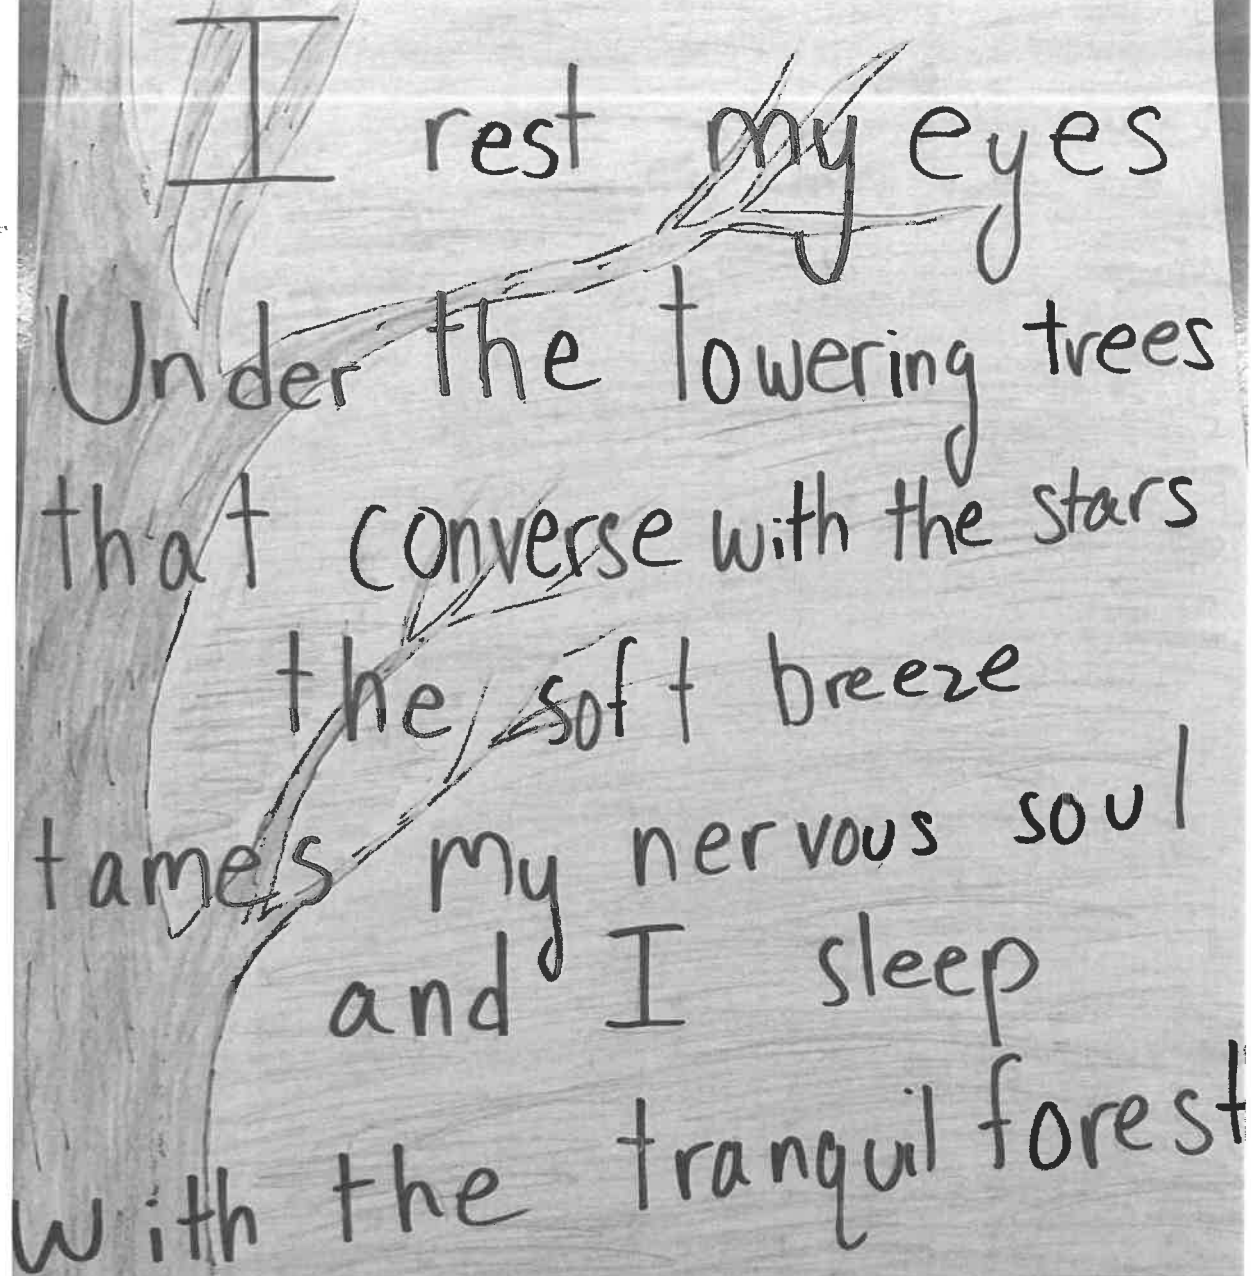 I rest my eyes
Under the towering trees
that converse with the stars
the soft breeze
tames my nervous soul
and I sleep
with the tranquil forest